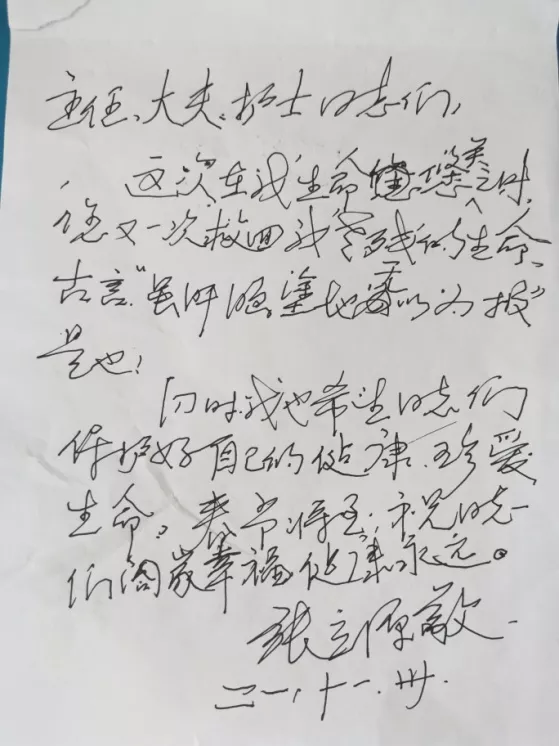 主任、大夫、护士同志们，
这次在我生命垂危关之时，
您又一次救回我残的生命，
古言“虽肝脑塗地无以为报”
是也！
同时我也希望同志们
保护好自己的健康、珍爱
生命。春节将至，祝同志
们阖家幸福健康永远。
张立原敬
二一、十一、卅.